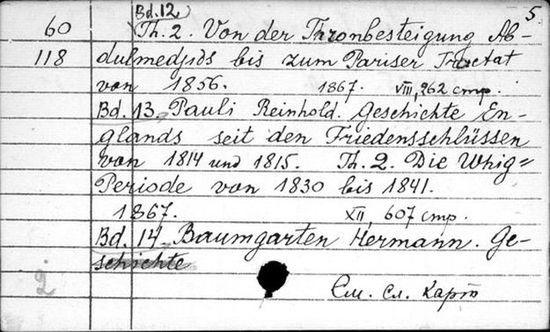 5.
Bd. 12
60 Th. 2. Von der Thronbesteigung Ab-
118 dulmedjids bis zum Pariser Tractat
von 1856. 1867. VIII, 262 стр.
Bd. 13. Pauli Reinhold. Geschichte En-
glands seit den Friedensschlüssen
von 1814 und 1815. Th. 2. Die Whig=
Periode von 1830 bis 1841.
1867. XII, 607 стр.
Bd. 14 Baumgarten Hermann. Ge-
schichte
2 См. сл. карт